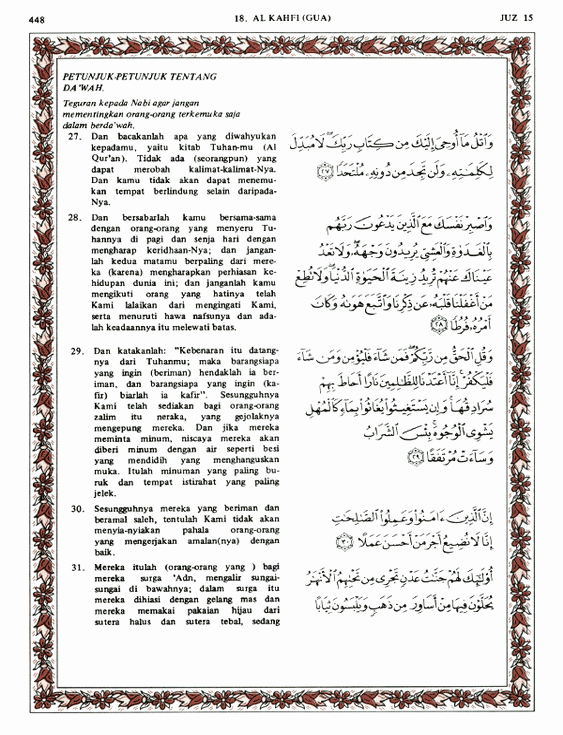 448
18. AL KAHFI (GUA)
JUZ 15
PETUNJUK-PETUNJUK TENTANG
DA'WAH.
Teguran kepada Nabi agar jangan
mementingkan orang-orang terkemuka saja
dalam berda'wah.
27. Dan bacakanlah apa yang diwahyukan
kepadamu, yaitu kitab Tuhan-mu (Al
Qur'an). Tidak ada (seorangpun) yang
dapat merobah kalimat-kalimat-Nya.
Dan kamu tidak akan dapat menemu-
kan tempat berlindung selain daripada-
Nya.
وَٱتْلُ مَآ أُوحِىَ إِلَيْكَ مِن كِتَابِ رَبِّكَ لَا مُبَدِّلَ
لِكَلِمَـٰتِهِۦ وَلَن تَجِدَ مِن دُونِهِۦ مُلْتَحَدًا ﴿٢٧﴾
28. Dan bersabarlah kamu bersama-sama
dengan orang-orang yang menyeru Tu-
hannya di pagi dan senja hari dengan
mengharap keridhaan-Nya; dan jangan-
lah kedua matamu berpaling dari mere-
ka (karena) mengharapkan perhiasan ke-
hidupan dunia ini; dan janganlah kamu
mengikuti orang yang hatinya telah
Kami lalaikan dari mengingati Kami,
serta menuruti hawa nafsunya dan ada-
lah keadaannya itu melewati batas.
وَٱصْبِرْ نَفْسَكَ مَعَ ٱلَّذِينَ يَدْعُونَ رَبَّهُم
بِٱلْغَدَوٰةِ وَٱلْعَشِىِّ يُرِيدُونَ وَجْهَهُۥ وَلَا تَعْدُ
عَيْنَاكَ عَنْهُمْ تُرِيدُ زِينَةَ ٱلْحَيَوٰةِ ٱلدُّنْيَا وَلَا تُطِعْ
مَنْ أَغْفَلْنَا قَلْبَهُۥ عَن ذِكْرِنَا وَٱتَّبَعَ هَوَىٰهُ وَكَانَ
أَمْرُهُۥ فُرُطًا ﴿٢٨﴾
29. Dan katakanlah: "Kebenaran itu datang-
nya dari Tuhanmu; maka barangsiapa
yang ingin (beriman) hendaklah ia ber-
iman, dan barangsiapa yang ingin (ka-
fir) biarlah ia kafir". Sesungguhnya
Kami telah sediakan bagi orang-orang
zalim itu neraka, yang gejolaknya
mengepung mereka. Dan jika mereka
meminta minum, niscaya mereka akan
diberi minum dengan air seperti besi
yang mendidih yang menghanguskan
muka. Itulah minuman yang paling bu-
ruk dan tempat istirahat yang paling
jelek.
وَقُلِ ٱلْحَقُّ مِن رَّبِّكُمْ فَمَن شَآءَ فَلْيُؤْمِن وَمَن شَآءَ
فَلْيَكْفُرْ إِنَّآ أَعْتَدْنَا لِلظَّـٰلِمِينَ نَارًا أَحَاطَ بِهِمْ
سُرَادِقُهَا وَإِن يَسْتَغِيثُوا۟ يُغَاثُوا۟ بِمَآءٍ كَٱلْمُهْلِ
يَشْوِى ٱلْوُجُوهَ بِئْسَ ٱلشَّرَابُ
وَسَآءَتْ مُرْتَفَقًا ﴿٢٩﴾
30. Sesungguhnya mereka yang beriman dan
beramal saleh, tentulah Kami tidak akan
menyia-nyiakan pahala orang-orang
yang mengerjakan amalan(nya) dengan
baik.
إِنَّ ٱلَّذِينَ ءَامَنُوا۟ وَعَمِلُوا۟ ٱلصَّـٰلِحَـٰتِ
إِنَّا لَا نُضِيعُ أَجْرَ مَنْ أَحْسَنَ عَمَلًا ﴿٣٠﴾
31. Mereka itulah (orang-orang yang ) bagi
mereka surga 'Adn, mengalir sungai-
sungai di bawahnya; dalam surga itu
mereka dihiasi dengan gelang mas dan
mereka memakai pakaian hijau dari
sutera halus dan sutera tebal, sedang
أُو۟لَـٰٓئِكَ لَهُمْ جَنَّـٰتُ عَدْنٍ تَجْرِى مِن تَحْتِهِمُ ٱلْأَنْهَـٰرُ
يُحَلَّوْنَ فِيهَا مِنْ أَسَاوِرَ مِن ذَهَبٍ وَيَلْبَسُونَ ثِيَابًا